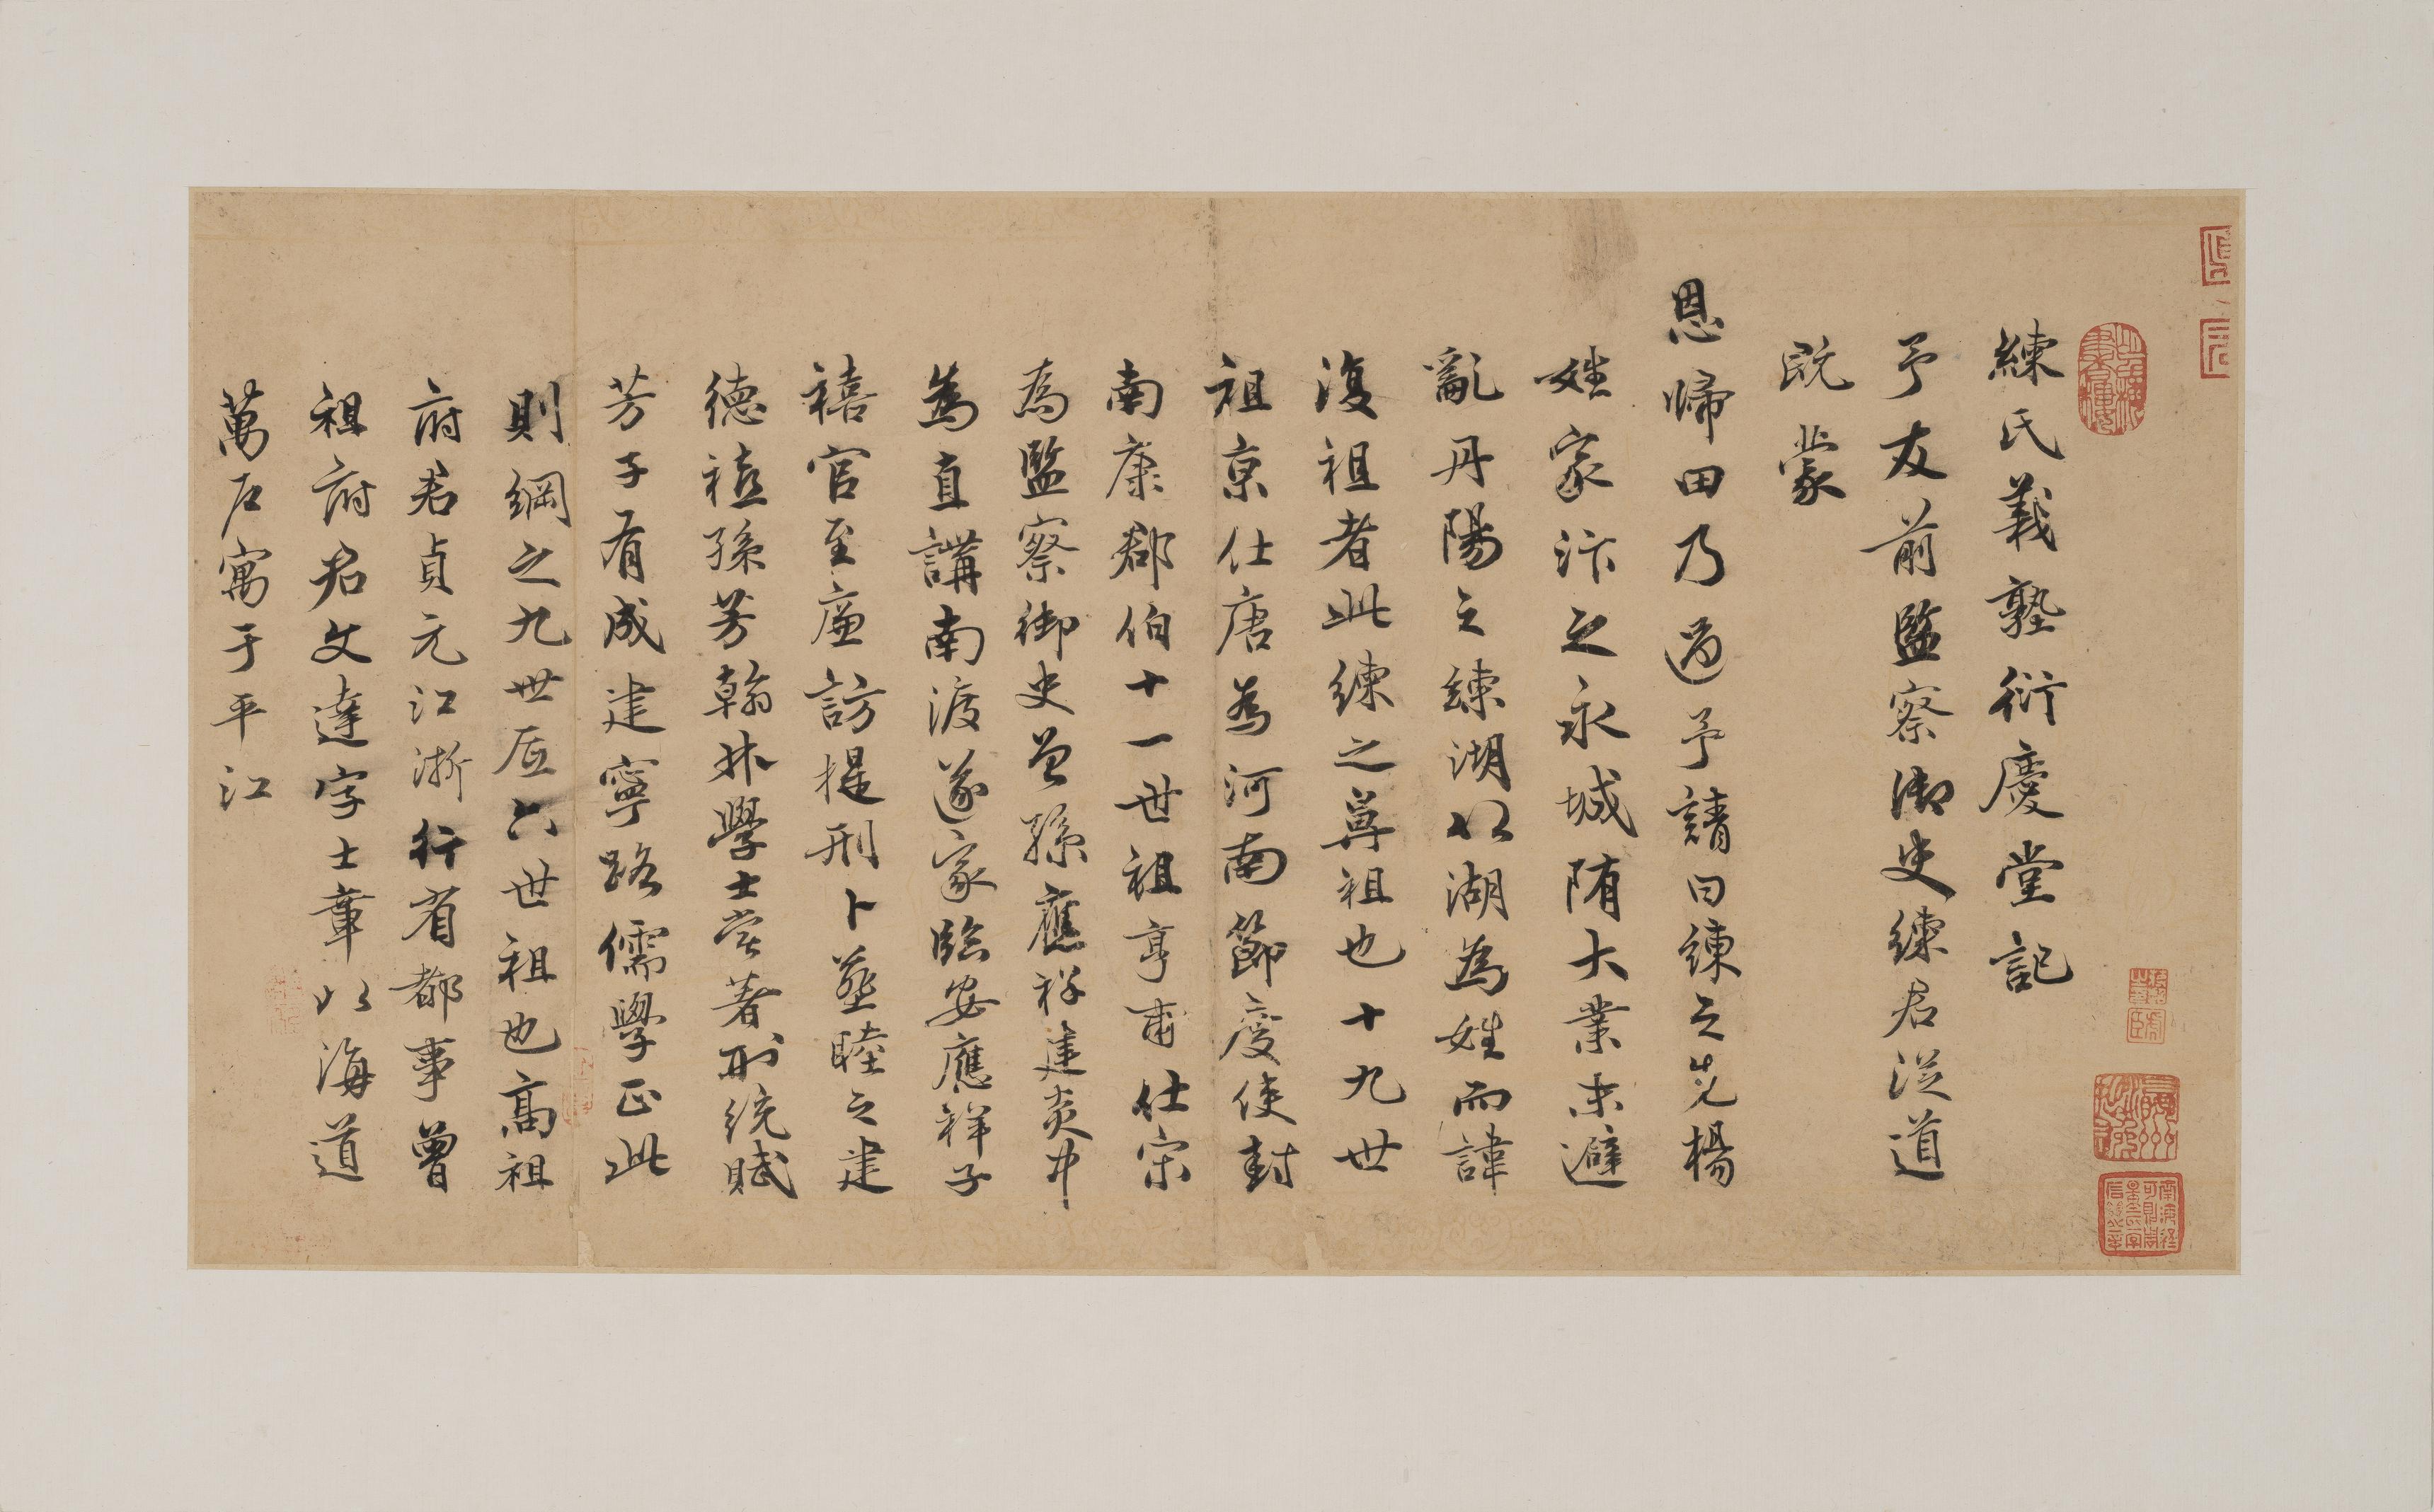 練氏義塾衍慶堂記
予友前監察御史練君從道
既蒙
恩歸田乃過予請曰練之先楊
姓家汴之永城隋大業末避
亂丹陽之練湖以湖為姓而諱
復祖者此練之鼻祖也十九世
祖京仕唐為河南節度使封
南康郡伯十一世祖亨甫仕宋
為監察御史曾孫應祥建炎中
為直講南渡遂家臨安應祥子
禧官至廉訪提刑卜葬睦之建
德禧孫芳翰林學士嘗著刑統賦
芳子有成建寧路儒學正此
則綱之九世八世祖也高祖
府君貞元江浙行省都事曾
祖府君文達字士章以海道
萬戶寓于平江